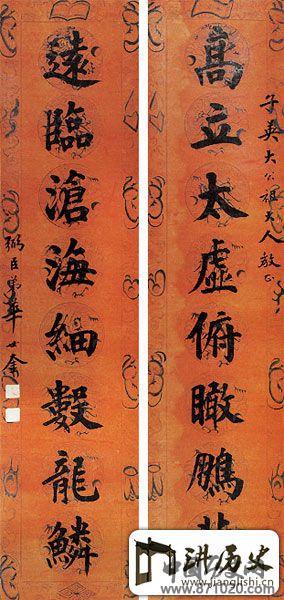 子英大公祖大人教正
高立太虛俯瞰鵬
遠臨滄海細數龍鱗
弼臣弟華世奎
讲历史
www.jianglishi.cn
www.871020.com